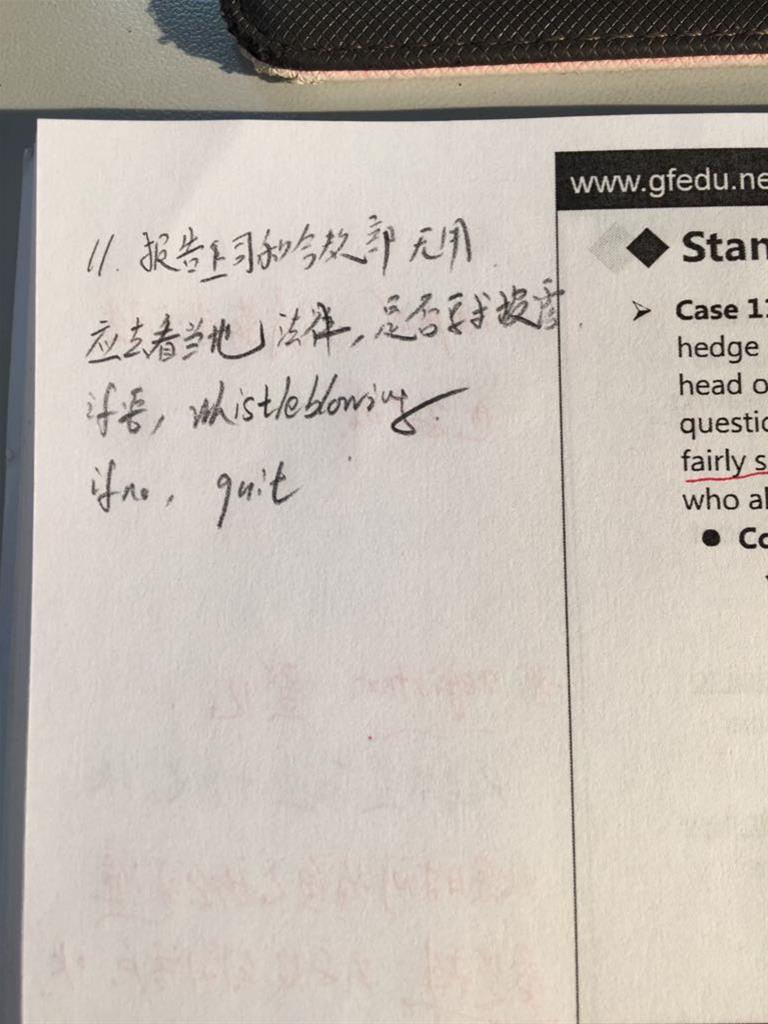 11. 报告上司和合规部无用
应去看当地法律，是否要求披露.
if要, whistleblowing
if no, quit
www.gfedu.ne
Stan
Case 11
hedge
head o
questio
fairly s
who al
Co